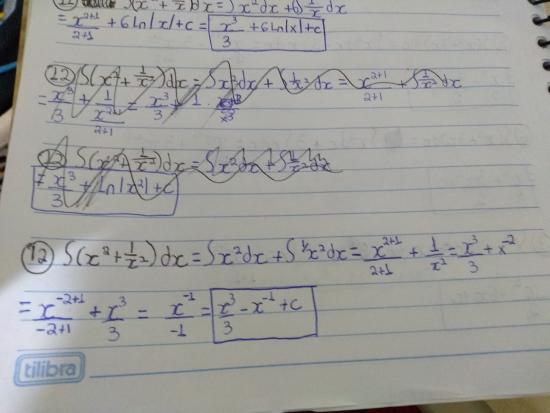 ∫(x² + 1/x)dx = ∫x²dx + 6∫1/x dx
= x²⁺¹/2+1 + 6Ln|x| + c = x³/3 + 6Ln|x| + c
12) ∫(x² + 1/x²)dx = ∫x²dx + ∫1/x² dx = x²⁺¹/2+1 + ∫1/x² dx
= x³/3 + 1/x²⁺¹/2+1 = x³/3 + 1
12) ∫(x² + 1/x²)dx = ∫x²dx + ∫1/x² dx
= x³/3 + Ln|x²| + c
12) ∫(x² + 1/x²)dx = ∫x²dx + ∫1/x²dx = x²⁺¹/2+1 + 1/x² = x³/3 + x⁻²
= x⁻²⁺¹/-2+1 + x³/3 = x⁻¹/-1 = x³/3 - x⁻¹ + c
tilibra